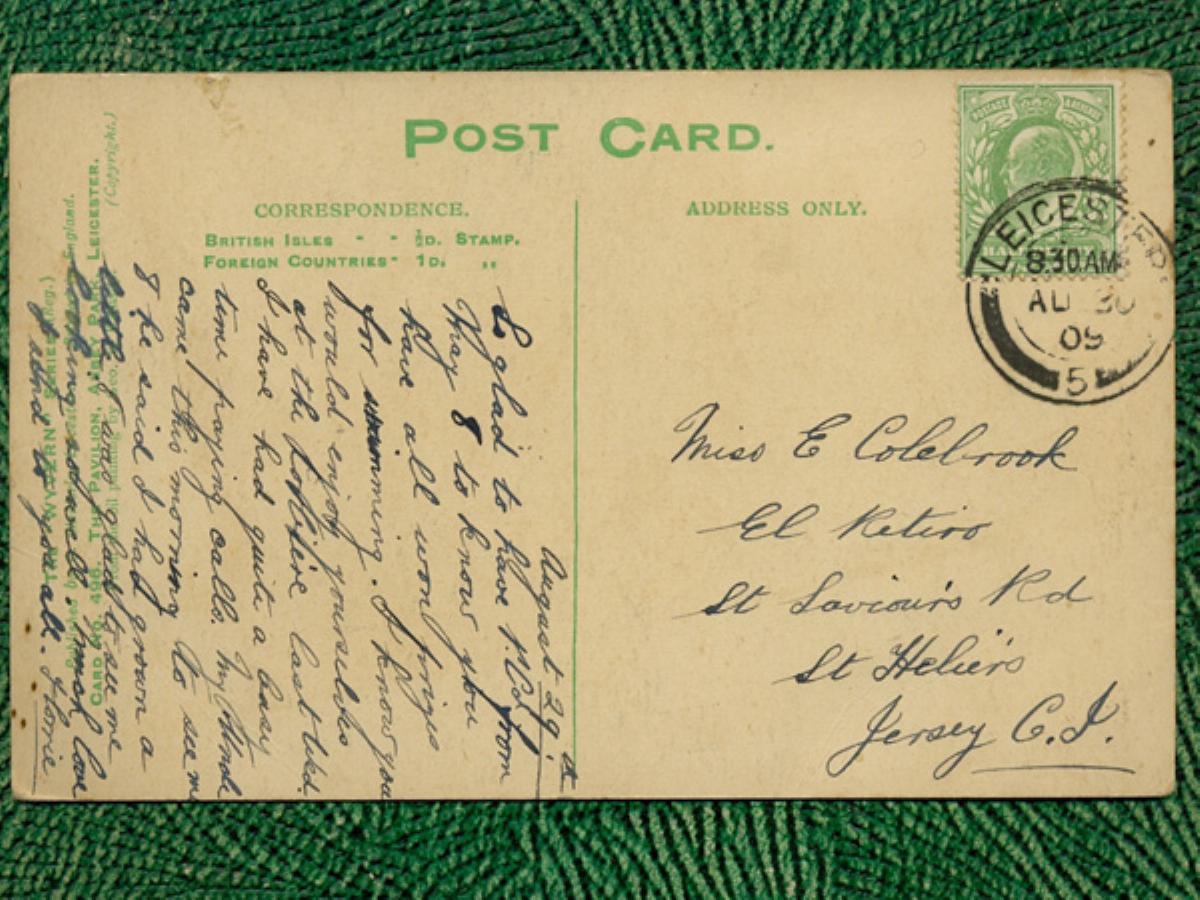 POST CARD.
CORRESPONDENCE.
BRITISH ISLES - - ½D. STAMP.
FOREIGN COUNTRIES - 1D. "
ADDRESS ONLY.
LEICESTER
8.30 AM
AU 30
09
5
Miss E Colebrook
El Retiro
St Saviour's Rd
St Helier's
Jersey C.I.
August 29th
So glad to have P.Cd from
May & to know you
have all won prizes
for swimming. I know you
would enjoy yourselves
at the last wkd.
I have had quite a busy
time paying calls. My Uncle
came this morning to see me
& he said I had grown a
little & was glad to see me
looking so well. Much love
to you all.
THE "WYVERN" SERIES
CARD NO. 496. THE PAVILION, ABBEY PARK, LEICESTER.
(Copyright.)